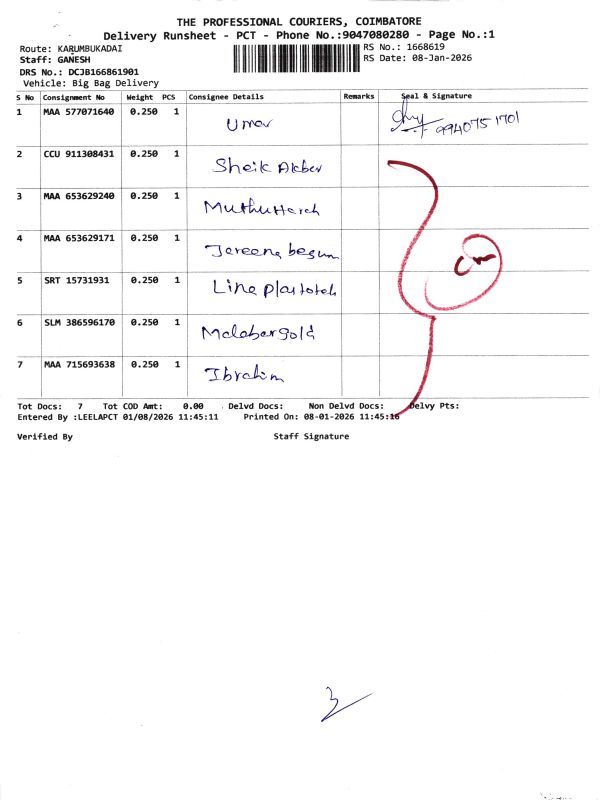 THE PROFESSIONAL COURIERS, COIMBATORE
Delivery Runsheet - PCT - Phone No.:9047080280 - Page No.:1
Route: KARUMBUKADAI
RS No.: 1668619
Staff: GANESH
RS Date: 08-Jan-2026
DRS No.: DCJB166861901
Vehicle: Big Bag Delivery
S No Consignment No Weight PCS Consignee Details Remarks Seal & Signature
1 MAA 577071640 0.250 1 Umar 9940751701
2 CCU 911308431 0.250 1 Sheik Akber
3 MAA 653629240 0.250 1
4 MAA 653629171 0.250 1 Jareena begum
5 SRT 15731931 0.250 1 Line
6 SLM 386596170 0.250 1 Malabar gold
7 MAA 715693638 0.250 1 Ibrahim
Tot Docs: 7 Tot COD Amt: 0.00 Delvd Docs: Non Delvd Docs: Delvy Pts:
Entered By :LEELAPCT 01/08/2026 11:45:11 Printed On: 08-01-2026 11:45:16
Verified By Staff Signature